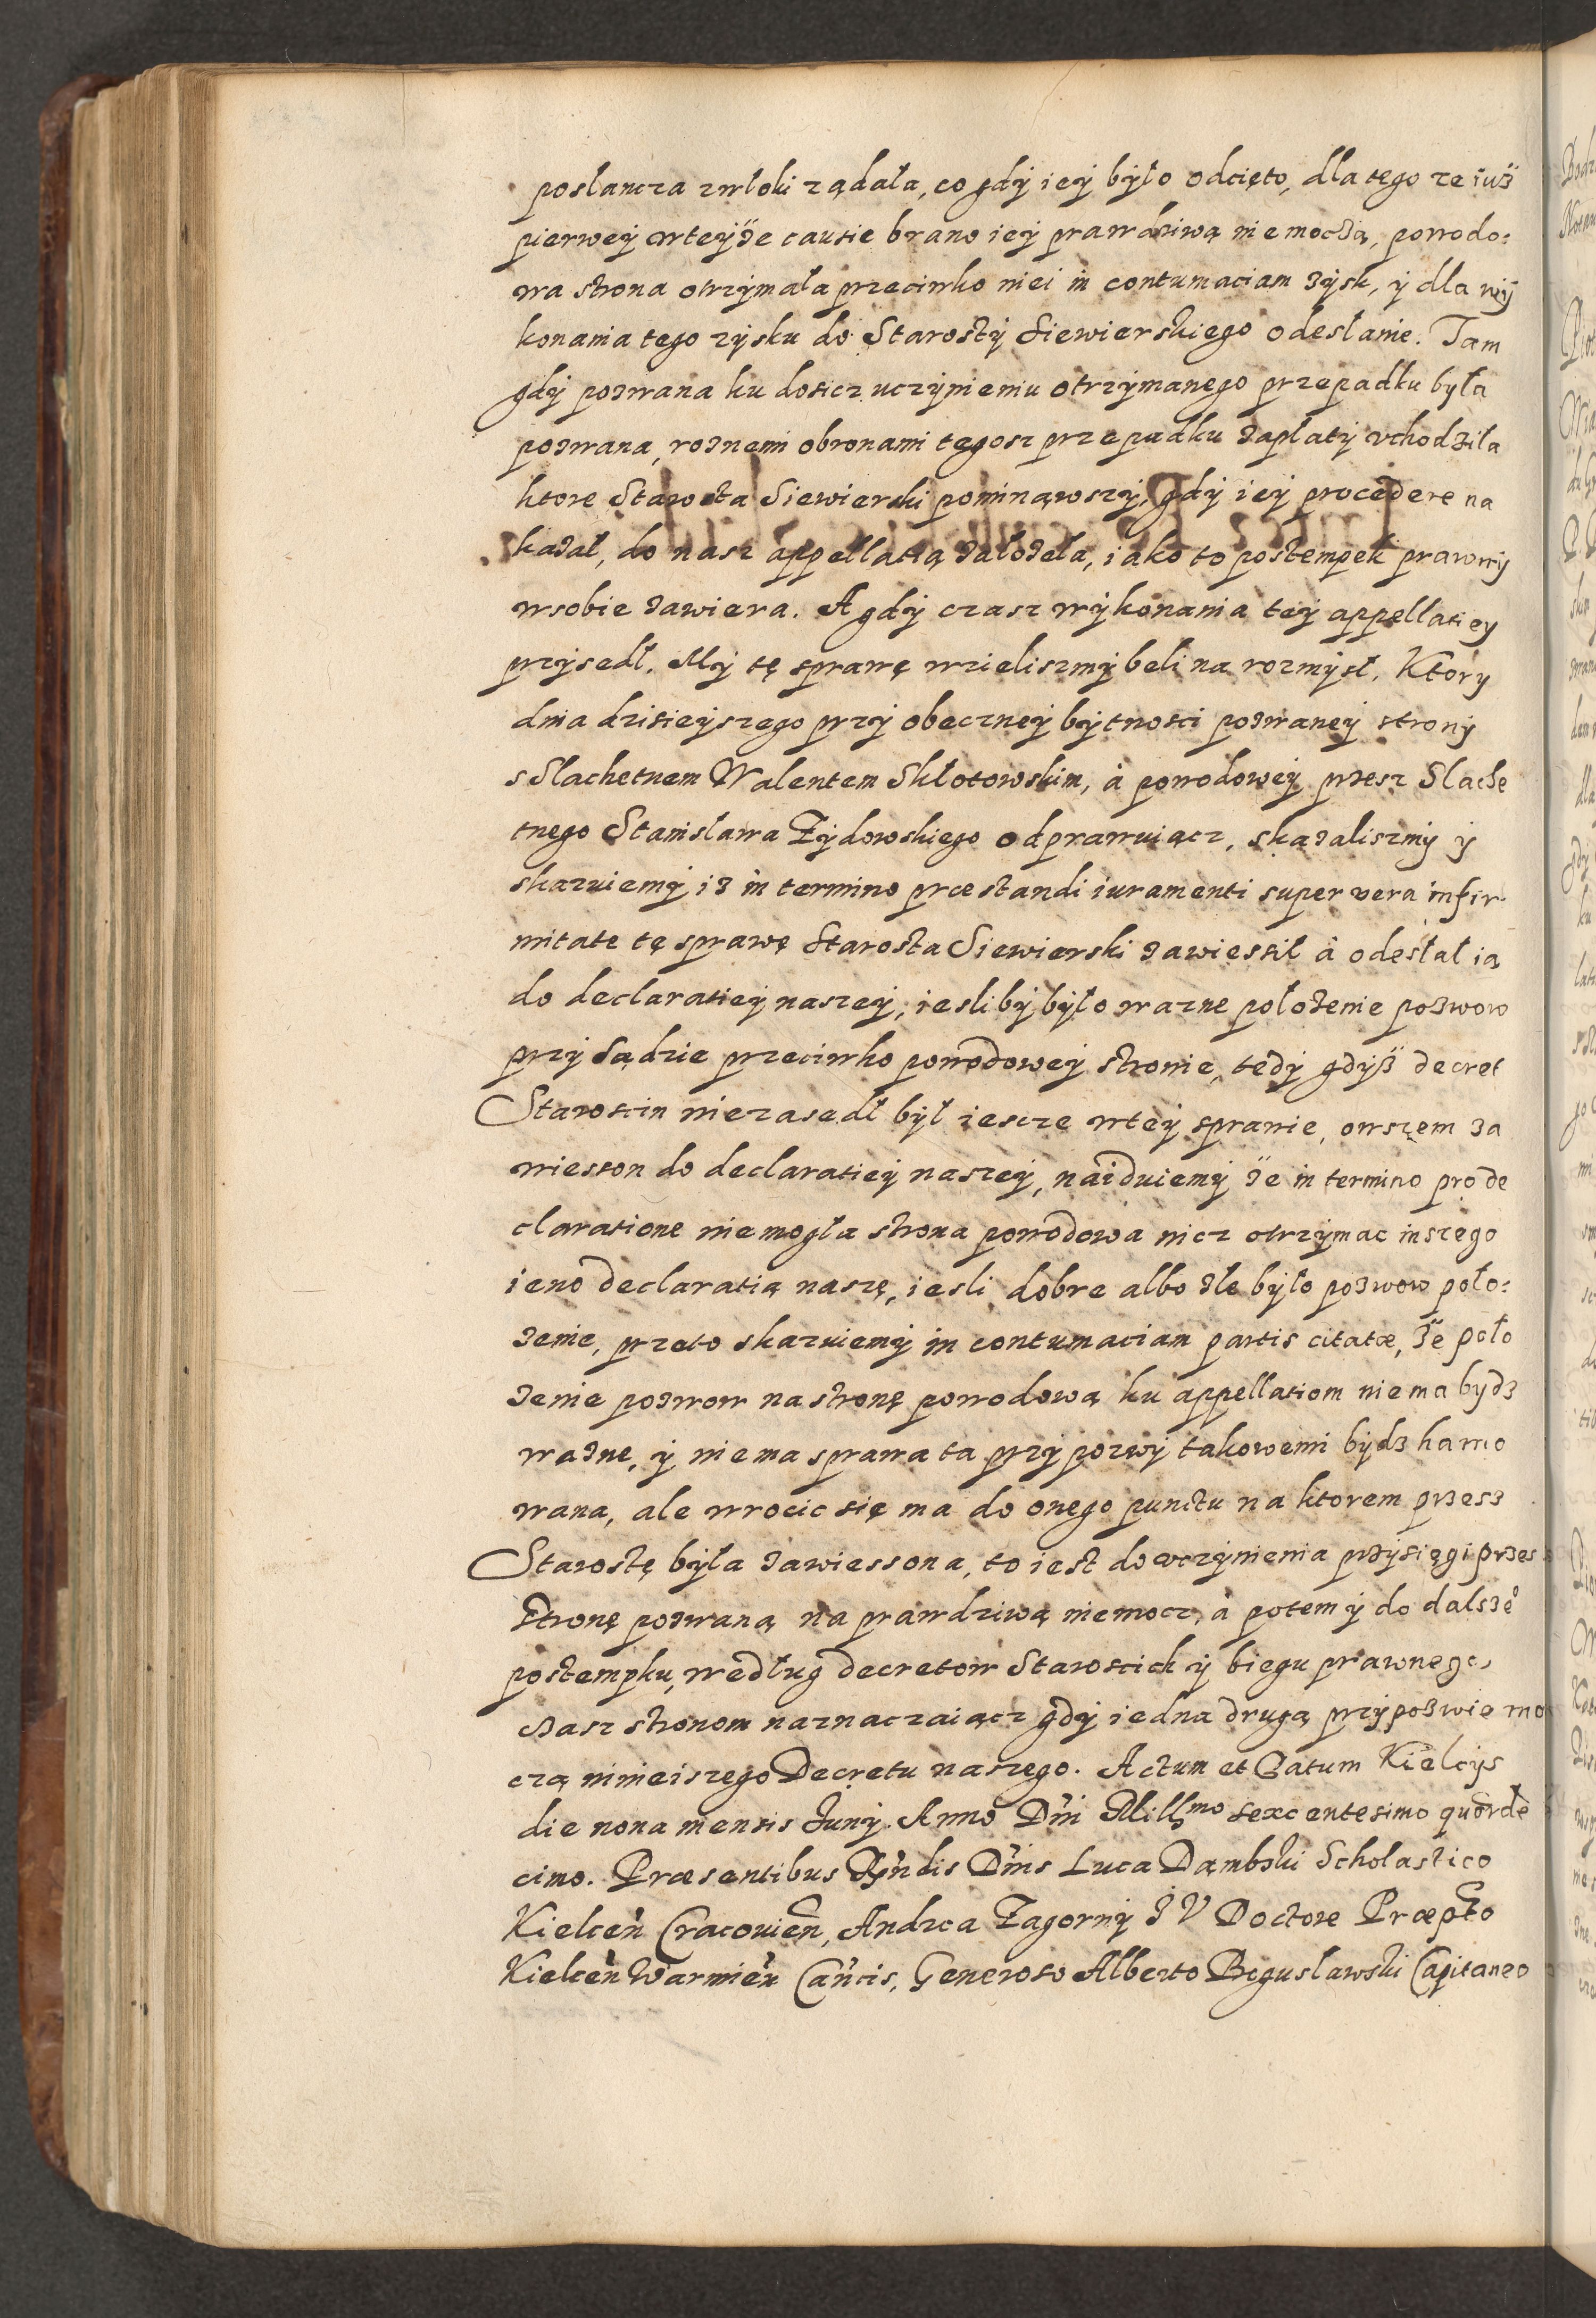 posłancza zwłoki ządała, co gdÿ ieÿ bÿło odcięto, dla tego ze iuʒ
pierweÿ wteÿʒe causie brano ieÿ prawdziwą niemoczą, powodo:
wa strona otrzÿmała przeciwko niei in contumaciam zÿsk, ÿ dla wÿ
konania tego zÿsku do Starostÿ Siewierskiego odesłanie. Tam
gdÿ pozwana ku dosicz uczÿnieniu otrzÿmanego przepadku była
pozwana, roznemi obronami tegosz przepadku zapłatÿ vchodziła
ktore Starosta Siewierski pominąwszÿ, gdÿ ieÿ procedere na
kazał, do nasz appellatią załozeła, iako to postempek prawnÿ
wsobie zawiera. A gdÿ czasz wÿkonania teÿ appellatieÿ
przÿsedł. Mÿ tę sprawę wzieliszmÿ beli na rozmÿsł. Ktorÿ
dnia dzisieÿszego przÿ obeczneÿ bÿtnosci pozwaneÿ stronÿ
s Slachetnem Walentem Skłotowskim, à powodoweÿ przesz Slache
tnego Stanisława Zÿdowskiego odprawuiącz, skazaliszmÿ ÿ
skazuiemÿ iz in termino præstandi iuramenti super vera infir-
mitate tę sprawę Starosta Siewierski zawiessił à odesłał ią
do declaratieÿ naszeÿ, iesli bÿ bÿło wazne połozenie pozwow
przÿ Sądzie przeciwko powodoweÿ stronie, tedÿ gdÿß decret
Staroscin niezasedł bÿł iescze wteÿ sprawie, owszem za
wiesson do declaratieÿ naszeÿ, naiduiemÿ ze in termino pro de
claratione niemogła strona powodowa nicz otrzÿmac inszego
ieno declaratią naszę, iesli dobre albo złe bÿło pozwow poło:
zenie, przeto skazuiemÿ in contumaciam partis citatæ, ze poło
zenie pozwow na stronę powodową ku appellatiom niema bÿdz
wazne, ÿ niema sprawa ta przÿ pozwÿ takowemi bÿdz hamo
wana, ale wrocic się ma do onego punctu na ktorem przesz
Starostę bÿła zawiessona, to iest do vczÿnienia przÿsięgi przes
stronę pozwaną na prawdziwą niemocz, à potem ÿ do dalszeº
postempku, według decretow Staroscich ÿ biegu prawnego,
czasz stronom naznaczaiącz gdÿ iedna drugą przÿpozwie mo
czą ninieiszego Decretu naszego. Actum et Datum Kielcÿs
die nona mensis Junÿ. Anno Dn̄i Mill͡mo sexcentesimo quorde
cimo. Præsentibus Rn̄dis Dn̄is Luca Dambski Scholastico
Kielcen̄ Cracouien̄, Andrea Zagornÿ J V Doctore Præpto
Kielcen̄ Warmien̄ Can̄cis, Generoso Alberto Boguslawski Capitaneo